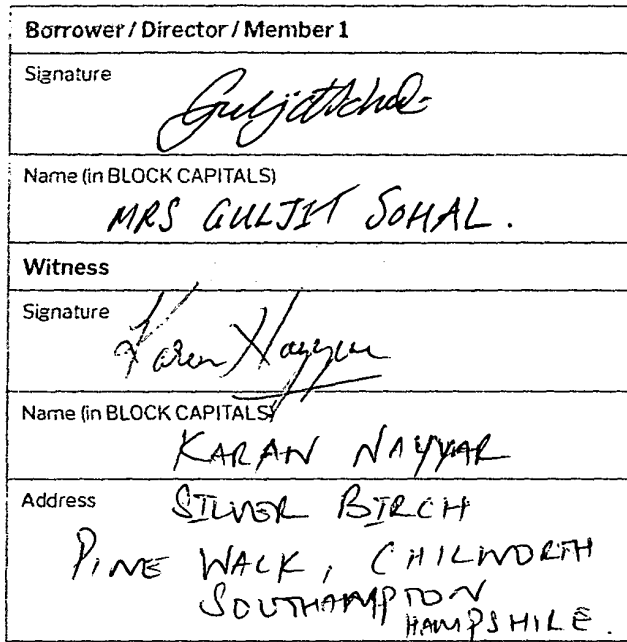 Borrower / Director / Member 1
Signature
Guljit Sohal
Name (in BLOCK CAPITALS)
MRS GULJIT SOHAL.
Witness
Signature
Karan Nayyar
Name (in BLOCK CAPITALS)
KARAN NAYYAR
Address SILVER BIRCH
PINE WALK, CHILWORTH
SOUTHAMPTON
HAMPSHIRE.